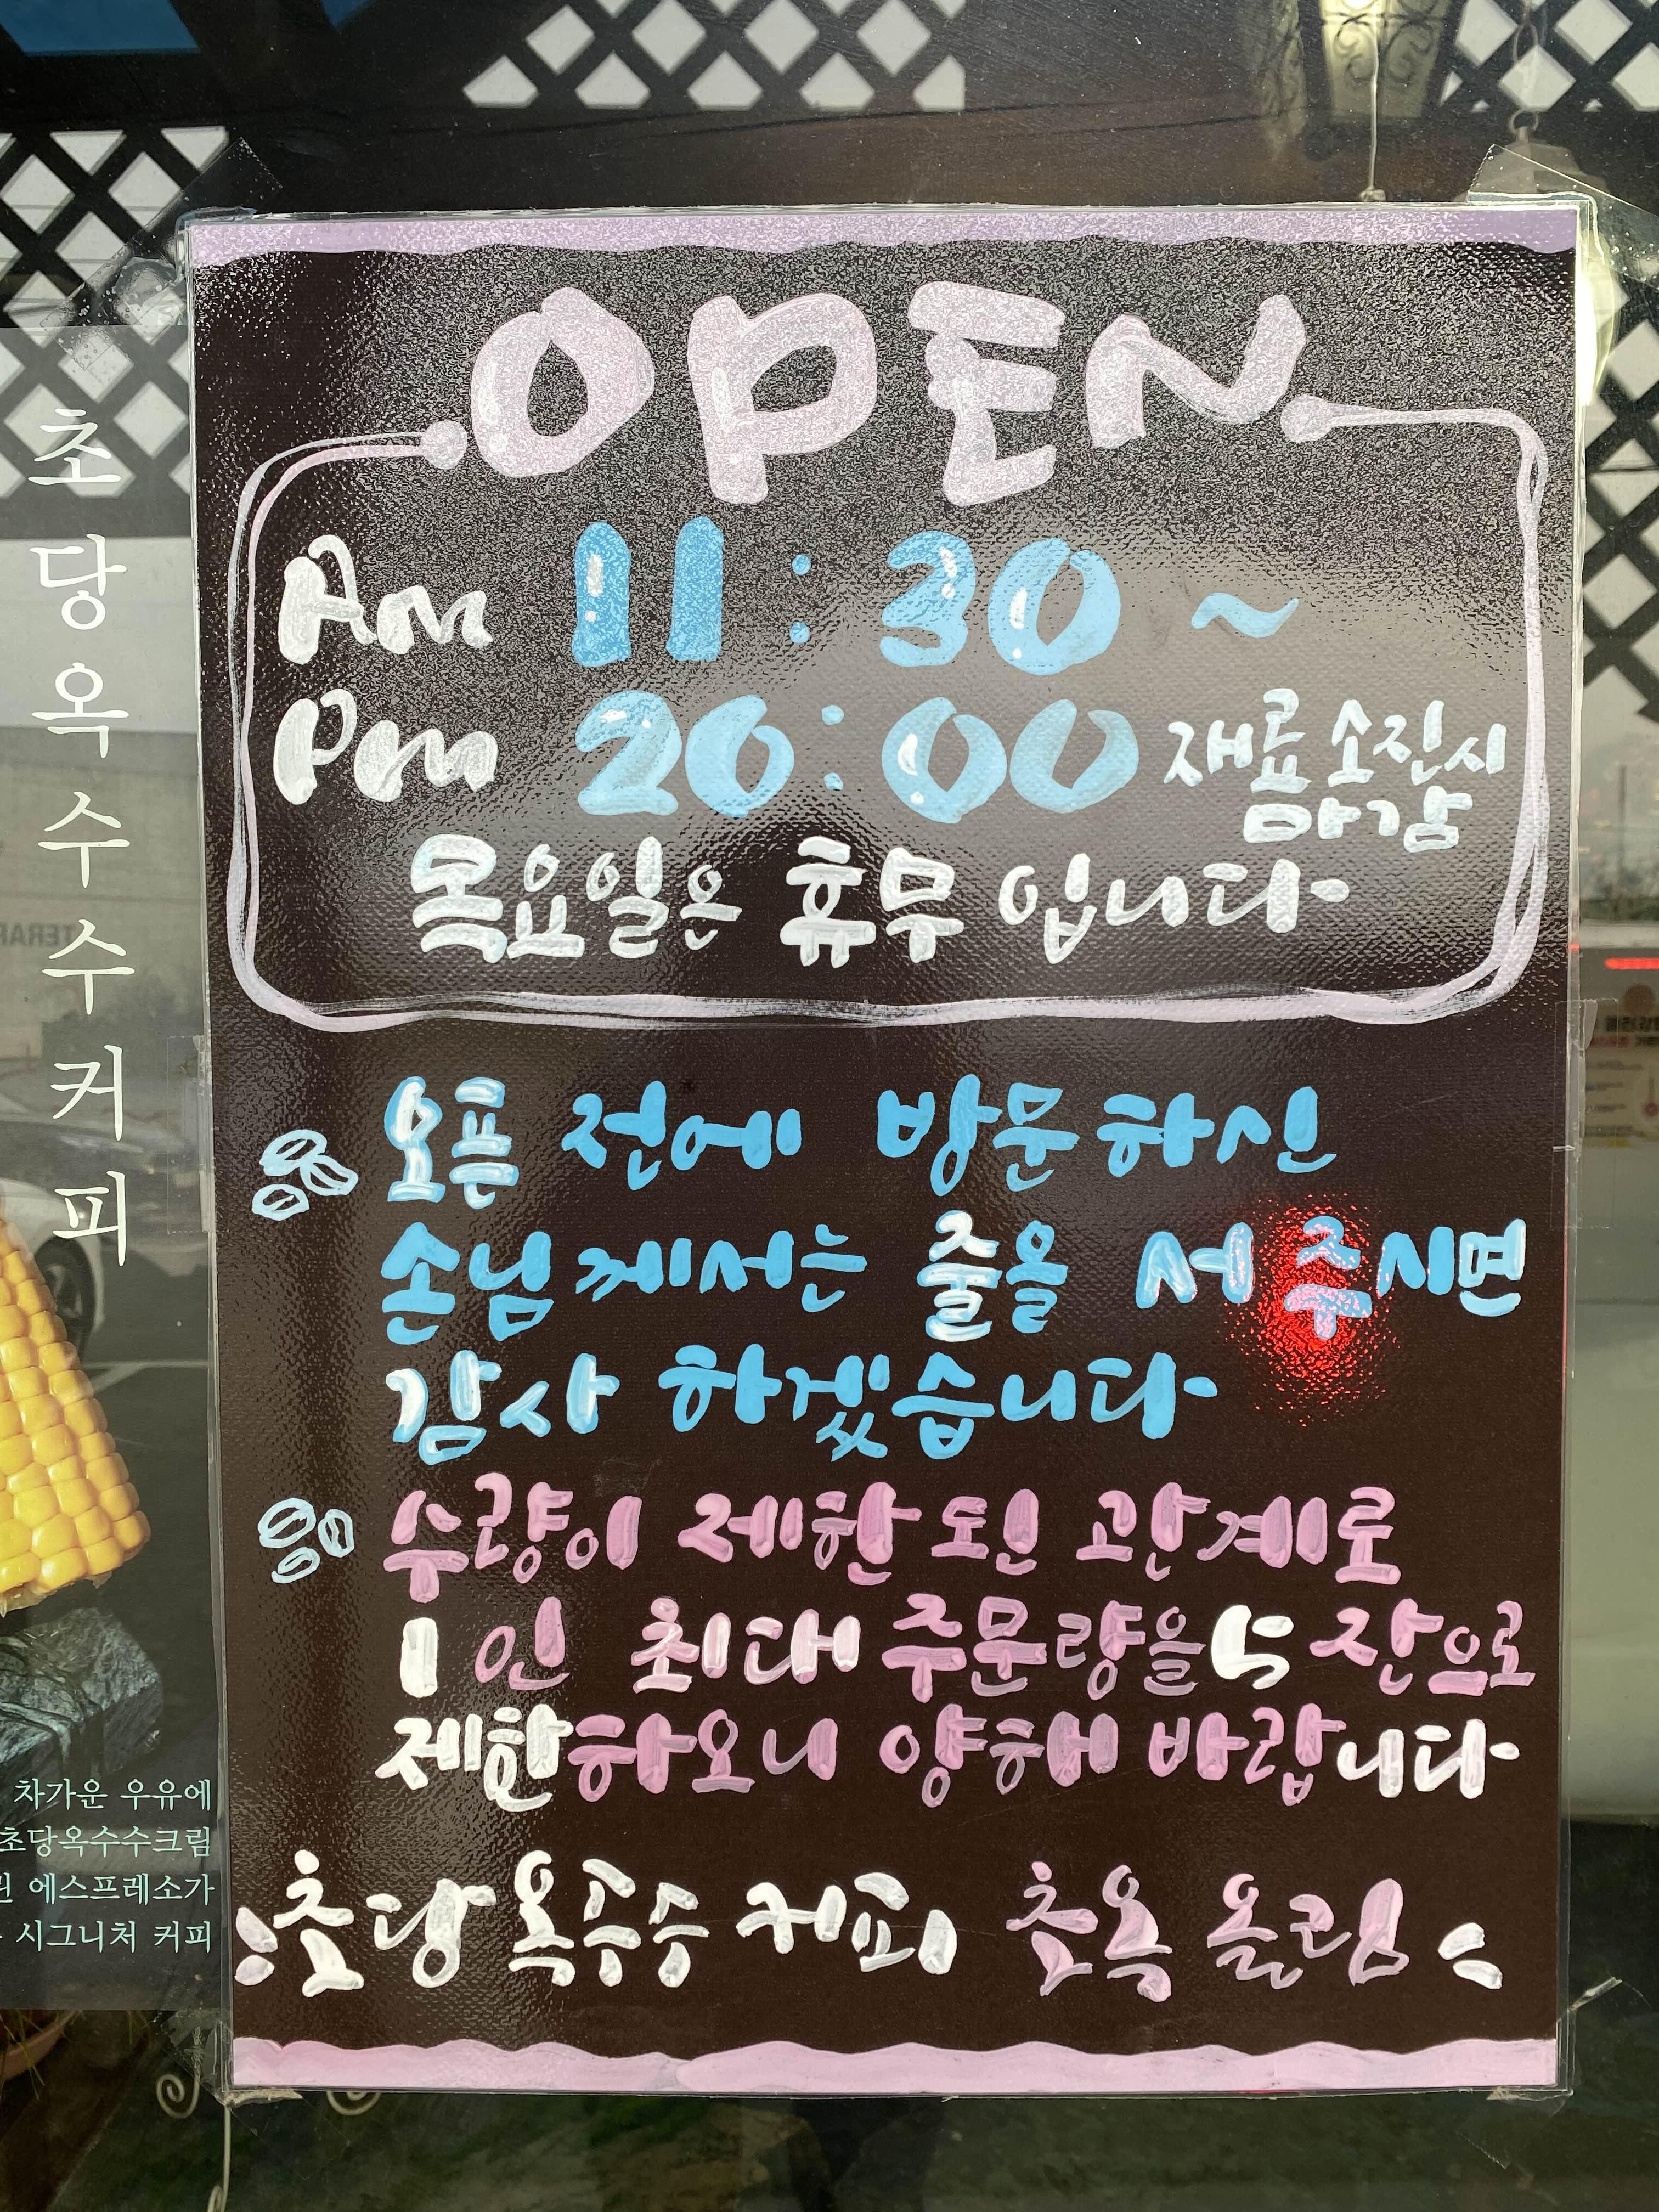 OPEN
Am 11:30 ~
Pm 20:00 재료 소진시
마감
목요일은 휴무 입니다
오픈 전에 방문하신
손님께서는 줄을 서 주시면
감사 하겠습니다
수량이 제한된 관계로
1인 최대 주문량을 5잔으로
제한하오니 양해 바랍니다
초당 옥수수 커피 초옥 올크림
초당옥수수커피
차가운 우유에
초당옥수수크림
에스프레소가
시그니처 커피